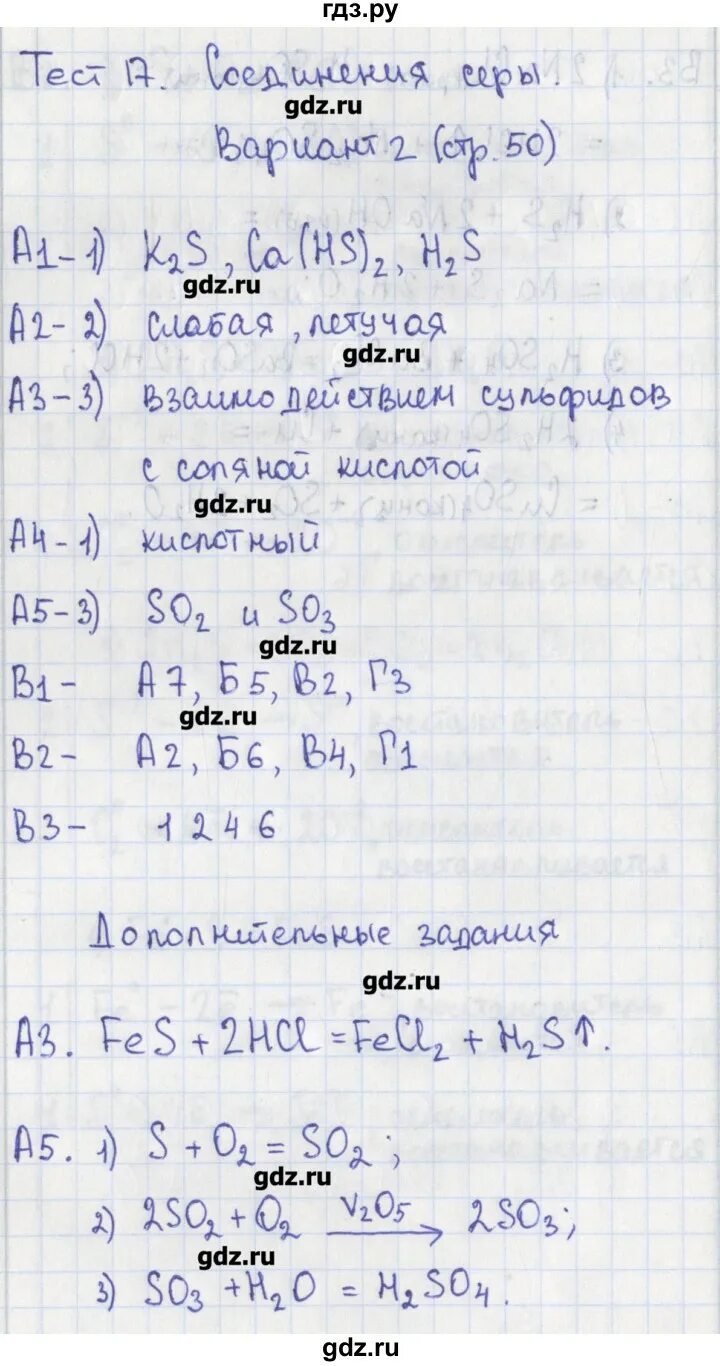 гдз.ру
Тест 17. Соединения серы.
gdz.ru
Вариант 2 (стр. 50)
А1-1) K₂S, Ca(HS)₂, H₂S
gdz.ru
А2-2) слабая, летучая
gdz.ru
А3-3) взаимодействием сульфидов
с соляной кислотой
gdz.ru
А4-1) кислотный
А5-3) SO₂ и SO₃
gdz.ru
В1- А7, Б5, В2, Г3
gdz.ru
В2- А2, Б6, В4, Г1
В3- 1246
Дополнительные задания
gdz.ru
А3. FeS + 2HCl = FeCl₂ + H₂S↑.
А5. 1) S + O₂ = SO₂;
gdz.ru
2) 2SO₂ + O₂ V₂O₅→ 2SO₃;
gdz.ru
3) SO₃ + H₂O = H₂SO₄.
gdz.ru